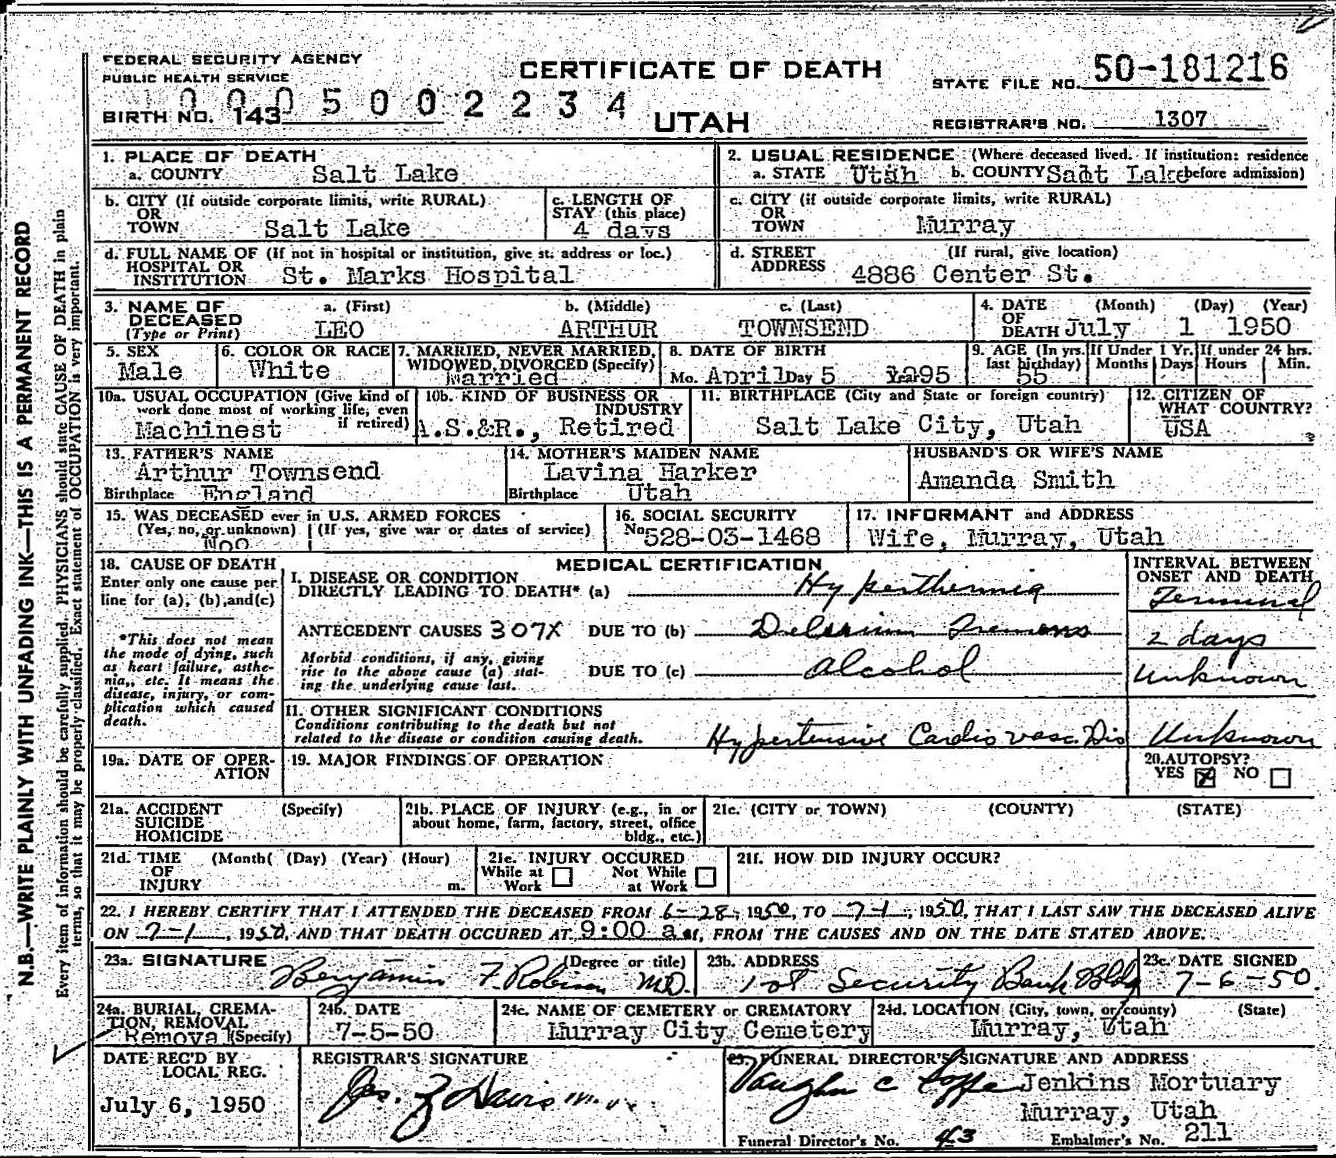 FEDERAL SECURITY AGENCY
PUBLIC HEALTH SERVICE
CERTIFICATE OF DEATH
STATE FILE NO. 50-181216
1 0 0 0 5 0 0 2 2 3 4
BIRTH NO. 143
UTAH
REGISTRAR'S NO. 1307
1. PLACE OF DEATH
a. COUNTY Salt Lake
2. USUAL RESIDENCE (Where deceased lived. If institution: residence
a. STATE Utah b. COUNTY Salt Lake before admission)
b. CITY (If outside corporate limits, write RURAL)
OR
TOWN Salt Lake
c. LENGTH OF
STAY (this place)
4 days
c. CITY (if outside corporate limits, write RURAL)
OR
TOWN Murray
d. FULL NAME OF (If not in hospital or institution, give st. address or loc.)
HOSPITAL OR
INSTITUTION St. Marks Hospital
d. STREET (If rural, give location)
ADDRESS 4886 Center St.
3. NAME OF DECEASED (Type or Print)
a. (First) b. (Middle) c. (Last)
LEO ARTHUR TOWNSEND
4. DATE (Month) (Day) (Year)
OF
DEATH July 1 1950
5. SEX
Male
6. COLOR OR RACE
White
7. MARRIED, NEVER MARRIED,
WIDOWED, DIVORCED (Specify)
Married
8. DATE OF BIRTH
Mo. April Day 5 Year 1895
9. AGE (In yrs.
last birthday)
55
If Under 1 Yr.
Months Days
If under 24 hrs.
Hours Min.
10a. USUAL OCCUPATION (Give kind of
work done most of working life, even
if retired)
Machinest
10b. KIND OF BUSINESS OR
INDUSTRY
A.S.&R., Retired
11. BIRTHPLACE (City and State or foreign country)
Salt Lake City, Utah
12. CITIZEN OF
WHAT COUNTRY?
USA
13. FATHER'S NAME
Arthur Townsend
Birthplace England
14. MOTHER'S MAIDEN NAME
Lavina Harker
Birthplace Utah
HUSBAND'S OR WIFE'S NAME
Amanda Smith
15. WAS DECEASED ever in U.S. ARMED FORCES
(Yes, no, or unknown) (If yes, give war or dates of service)
16. SOCIAL SECURITY
No 528-03-1468
17. INFORMANT and ADDRESS
Wife, Murray, Utah
18. CAUSE OF DEATH
Enter only one cause per
line for (a), (b), and (c)
*This does not mean
the mode of dying, such
as heart failure, asthe-
nia, etc. It means the
disease, injury, or com-
plication which caused
death.
MEDICAL CERTIFICATION
INTERVAL BETWEEN
ONSET AND DEATH
I. DISEASE OR CONDITION
DIRECTLY LEADING TO DEATH* (a) Hyperthermia Terminal
ANTECEDENT CAUSES 307X DUE TO (b) Delerium Tremens 2 days
Morbid conditions, if any, giving
rise to the above cause (a) stat-
ing the underlying cause last.
DUE TO (c) Alcohol Unknown
II. OTHER SIGNIFICANT CONDITIONS
Conditions contributing to the death but not
related to the disease or condition causing death.
Hypertensive Cardiovasc. Dis Unknown
19a. DATE OF OPER-
ATION
19. MAJOR FINDINGS OF OPERATION
20. AUTOPSY?
YES X NO
21a. ACCIDENT (Specify)
SUICIDE
HOMICIDE
21b. PLACE OF INJURY (e.g., in or
about home, farm, factory, street, office
bldg., etc.)
21c. (CITY or TOWN) (COUNTY) (STATE)
21d. TIME (Month( (Day) (Year) (Hour)
OF
INJURY m.
21e. INJURY OCCURED
While at Work Not While at Work
21f. HOW DID INJURY OCCUR?
22. I HEREBY CERTIFY THAT I ATTENDED THE DECEASED FROM 6-28, 1950, TO 7-1, 1950, THAT I LAST SAW THE DECEASED ALIVE
ON 7-1, 1950, AND THAT DEATH OCCURED AT 9:00 a M, FROM THE CAUSES AND ON THE DATE STATED ABOVE.
23a. SIGNATURE (Degree or title)
Benjamin F. Robison M.D.
23b. ADDRESS
1st Security Bank Bldg
23c. DATE SIGNED
7-6-50.
24a. BURIAL, CREMA-
TION, REMOVAL
Removal (Specify)
24b. DATE
7-5-50
24c. NAME OF CEMETERY or CREMATORY
Murray City Cemetery
24d. LOCATION (City, town, or county) (State)
Murray, Utah
DATE REC'D BY
LOCAL REG.
July 6, 1950
REGISTRAR'S SIGNATURE
25. FUNERAL DIRECTOR'S SIGNATURE AND ADDRESS
Vaughn C Jenkins Mortuary
Murray, Utah
Funeral Director's No. 43 Embalmer's No. 211
N.B.—WRITE PLAINLY WITH UNFADING INK—THIS IS A PERMANENT RECORD
Every item of information should be carefully supplied. PHYSICIANS should state CAUSE OF DEATH in plain
terms, so that it may be properly classified. Exact statement of OCCUPATION is very important.